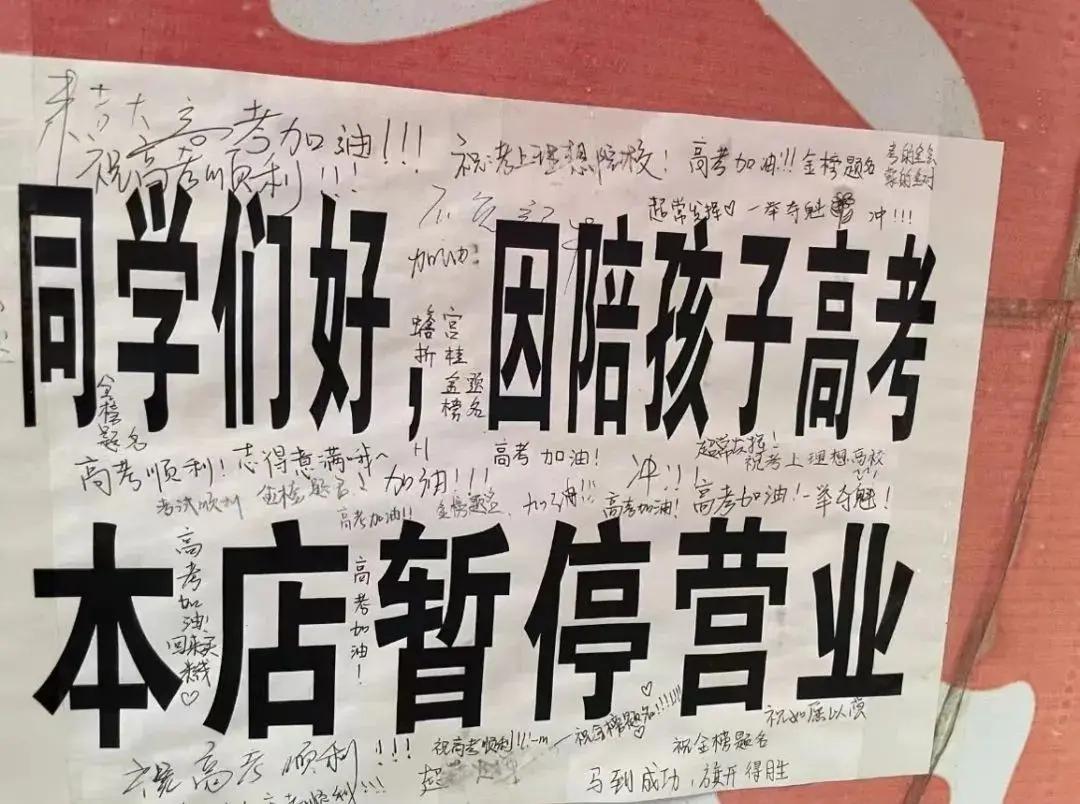 高考加油!!!
祝高考顺利!!!
祝考上理想院校!
高考加油!!!
金榜题名
考的全会
蒙的全对
超常发挥♡
一举夺魁
冲!!!
加油!
同学们好，因陪孩子高考
蟾宫
折桂
金题
榜名
金榜
题名
高考顺利!
志得意满哦~
加油!!!
高考加油!
冲!!!
超常发挥!
祝考上理想高校
考试顺利
金榜题名!
高考加油!!
金榜题名
加油!!!
高考加油!
高考加油!
一举夺魁!
本店暂停营业
高考加油!
回来买
♡
高考加油!
祝高考顺利!!!
祝高考顺利!!!
祝金榜题名!!!!!!
♡
祝如愿以偿
祝金榜题名
超
高考顺利!!!
马到成功，旗开得胜